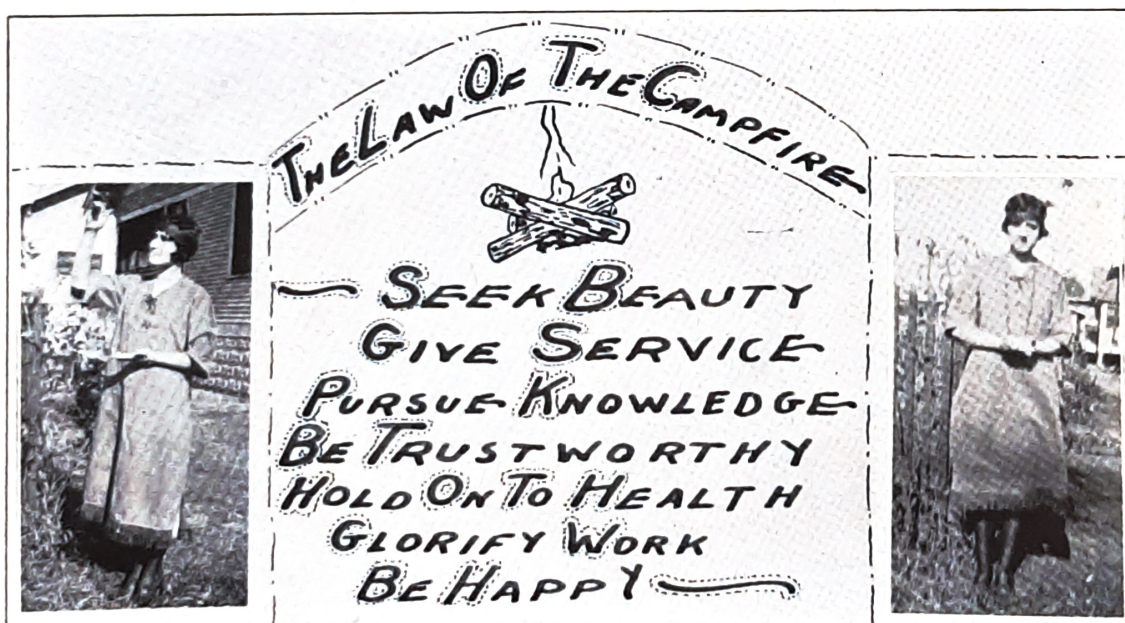 The Law Of The Campfire
Seek Beauty
Give Service
Pursue Knowledge
Be Trustworthy
Hold On To Health
Glorify Work
Be Happy